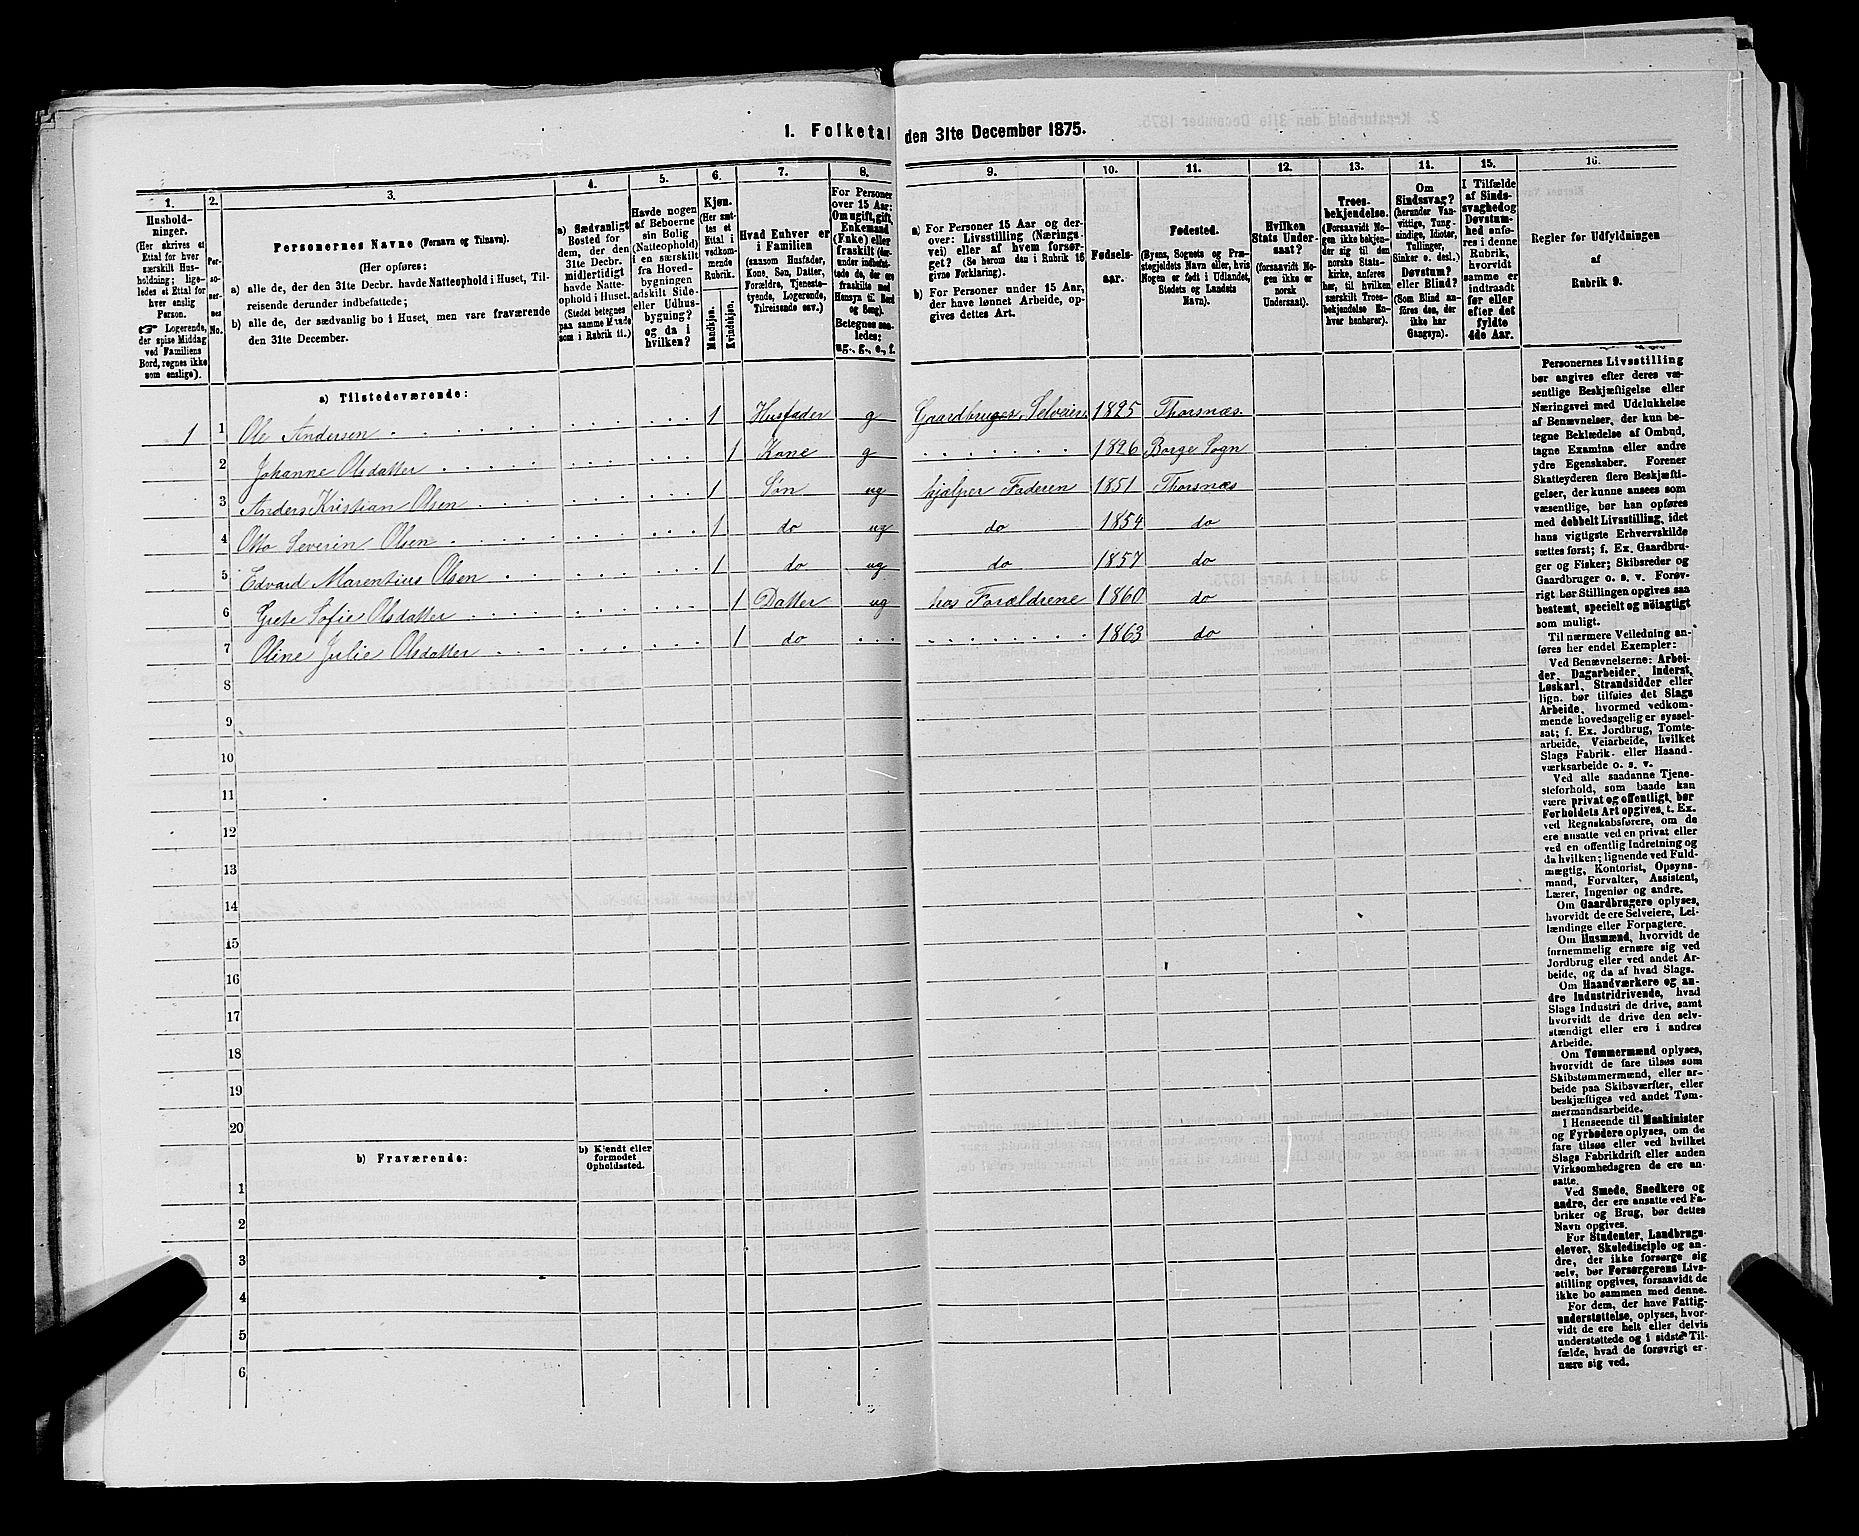 1. Folketal den 31te December 1875.
1.
Hushold-
ninger.
(Her skrives et
Ettal for hver
særskilt Hus-
holdning; lige-
ledes et Ettal for
hver enslig
Person.
Logerende,
der spise Middag
ved Familiens
Bord, regnes ikke
som enslige).
2.
Per-
so-
ner-
nes
No.
3.
Personernes Navne (Fornavn og Tilnavn).
(Her opføres:
a) alle de, der den 31te Decbr. havde Natteophold i Huset, Til-
reisende derunder indbefattede;
b) alle de, der sædvanlig bo i Huset, men vare fraværende
den 31te December.
4.
a) Sædvanligt
Bosted for
dem, der den
31te Decbr.
midlertidigt
havde Natte-
ophold i Huset.
(Stedet betegnes
paa samme Maade
som i Rubrik 11.)
5.
Havde nogen
af Beboerne
sin Bolig
(Natteophold)
i en særskilt
fra Hoved-
bygningen
adskilt Side-
eller Udhus-
bygning?
og da i
hvilken?
6.
Kjøn.
(Her sæt-
tes et
Ettal i
vedkom-
mende
Rubrik.
Mandkjøn.
Kvindekjøn.
7.
Hvad Enhver er
i Familien
(saasom Husfader,
Kone, Søn, Datter,
Forældre, Tjeneste-
tyende, Logerende,
Tilreisende osv.)
8.
For Personer
over 15 Aar:
Om ugift, gift,
Enkemand
(Enke) eller
fraskilt (der-
under indbefat-
tede de, der ere
fraskilte med
Hensyn til Bord
og Seng).
Betegnes saa-
ledes:
ug., g., e., f.
9.
a) For Personer 15 Aar og der-
over: Livsstilling (Nærings-
vei) eller af hvem forsør-
get? (Se herom den i Rubrik 16
givne Forklaring).
b) For Personer under 15 Aar,
der have lønnet Arbeide, op-
gives dettes Art.
10.
Fødsels-
aar.
11.
Fødested.
(Byens, Sognets og Præ-
stegjeldets Navn eller, hvis
Nogen er født i Udlandet,
Stedets og Landets
Navn).
12.
Hvilken
Stats Under-
saat?
(forsaavidt No-
gen ikke er
norsk
Undersaat).
13.
Troes-
bekjendelse.
(Forsaavidt No-
gen ikke bekjen-
der sig til den
norske Stats-
kirke, anføres
her, til hvilken
særskilt Troes-
bekjendelse En-
hver henhører).
14.
Om
Sindssvag?
(herunder Van-
vittige, Tung-
sindige, Idioter,
Tullinger,
Sinker o. desl.)
Døvstum?
eller Blind?
(Som Blind an-
føres den, der
ikke har
Gangsyn).
15.
I Tilfælde
af Sinds-
svaghed og
Døvstum-
hed anfø-
res i denne
Rubrik,
hvorvidt
samme er
indtraadt
før eller
efter det
fyldte
4de Aar.
16.
Regler for Udfyldningen
af
Rubrik 9.
a) Tilstedeværende:
1 1 Ole Andersen 1 Husfader g Gaardbruger, Selveier 1825 Thorsnæs
2 Johanne Olsdatter 1 Kone g 1826 Borge Sogn
3 Anders Kristian Olsen 1 Søn ug hjælper Faderen 1851 Thorsnæs
4 Otto Severin Olsen 1 do ug do 1854 do
5 Edvard Marentius Olsen 1 do ug do 1857 do
6 Grete Sofie Olsdatter 1 Datter ug hos Forældrene 1860 do
7 Oline Julie Olsdatter 1 do 1863 do
8
9
10
11
12
13
14
15
16
17
18
19
20
b) Fraværende:
b) Kjendt eller
formodet
Opholdssted.
1
2
3
4
5
6
Personernes Livsstilling
bør angives efter deres væ-
sentlige Beskjæftigelse eller
Næringsvei med Udelukkelse
af Benævnelser, der kun be-
tegne Beklædelse af Ombud,
tagne Examina eller andre
ydre Egenskaber. Forener
Skatteyderen flere Beskjæfti-
gelser, der kunne ansees som
væsentlige, bør han opføres
med dobbelt Livsstilling, idet
hans vigtigste Erhvervskilde
sættes først; f. Ex. Gaardbru-
ger og Fisker; Skibsreder og
Gaardbruger o. s. v. Forøv-
rigt bør Stillingen opgives saa
bestemt, specielt og nøiagtigt
som muligt.
Til nærmere Veiledning an-
føres her endel Exempler:
Ved Benævnelserne: Arbei-
der, Dagarbeider, Inderst,
Løskarl, Strandsidder eller
lign. bør tilføies det Slags
Arbeide, hvormed vedkom-
mende hovedsagelig er syssel-
sat; f. Ex. Jordbrug, Tomte-
arbeide, Veiarbeide, hvilket
Slags Fabrik- eller Haand-
værksarbeide o. s. v.
Ved alle saadanne Tjene-
steforhold, som baade kan
være privat og offentligt, bør
Forholdets Art opgives, t. Ex.
ved Regnskabsførere, om de
ere ansatte ved en privat eller
ved en offentlig Indretning og
da hvilken; lignende ved Fuld-
mægtig, Kontorist, Opsyns-
mand, Forvalter, Assistent,
Lærer, Ingeniør og andre.
Om Gaardbrugere oplyses,
hvorvidt de ere Selveiere, Lei-
lændinge eller Forpagtere.
Om Husmænd, hvorvidt de
fornemmelig ernære sig ved
Jordbrug eller ved andet Ar-
beide, og da af hvad Slags.
Om Haandværkere og an-
dre Industridrivende, hvad
Slags Industri de drive, samt
hvorvidt de drive den selv-
stændigt eller ere i andres
Arbeide.
Om Tømmermænd oplyses,
hvorvidt de fare tilsøs som
Skibstømmermænd, eller ar-
beide paa Skibsværfter, eller
beskjæftiges ved andet Tøm-
mermandsarbeide.
I Henseende til Maskinister
og Fyrbødere oplyses, om de
fare tilsøs eller ved hvilket
Slags Fabrikdrift eller anden
Virksomhedsgren de ere an-
satte.
Ved Smede, Snedkere og
andre, der ere ansatte ved Fa-
briker og Brug, bør dettes
Navn opgives.
For Studenter, Landbrugs-
elever, Skoledisciple og an-
dre, der ikke forsørge sig
selv, bør Forsørgerens Livs-
stilling opgives, forsaavidt de
ikke bo sammen med denne.
For dem, der have Fattig-
understøttelse, oplyses, hvor-
vidt de ere helt eller delvis
understøttede og i sidste Til-
fælde, hvad de forøvrigt er-
nære sig ved.